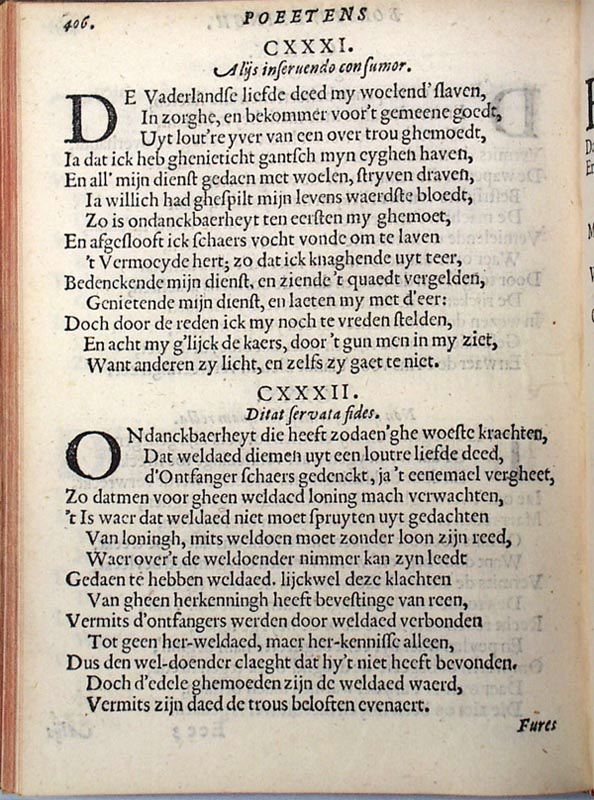 406. POEETENS
CXXXI.
Alijs inserviendo consumor.
DE Vaderlandse liefde deed my woelend' slaven,
In zorghe, en bekommer voor't gemeene goedt,
Uyt lout're yver van een over trou ghemoedt,
Ia dat ick heb ghenieticht gantsch myn eyghen haven,
En all' mijn dienst gedaen met woelen, stryven draven,
Ia willich had ghespilt mijn levens waerdste bloedt,
Zo is ondanckbaerheyt ten eersten my ghemoet,
En afgeslooft ick schaers vocht vonde om te laven
't Vermoeyde hert; zo dat ick knaghende uyt teer,
Bedenckende mijn dienst, en ziende 't quaedt vergelden,
Genietende mijn dienst, en laeten my met d'eer:
Doch door de reden ick my noch te vreden stelden,
En acht my g'lijck de kaers, door 't gun men in my ziet,
Want anderen zy licht, en zelfs zy gaet te niet.
CXXXII.
Ditat servata fides.
ONdanckbaerheyt die heeft zodaen'ghe woeste krachten,
Dat weldaed diemen uyt een loutre liefde deed,
d'Ontfanger schaers gedenckt, ja 't eenemael vergheet,
Zo datmen voor gheen weldaed loning mach verwachten,
't Is waer dat weldaed niet moet spruyten uyt gedachten
Van loningh, mits weldoen moet zonder loon zijn reed,
Waer over't de weldoender nimmer kan zyn leedt
Gedaen te hebben weldaed. lijckwel deze klachten
Van gheen herkenningh heeft bevestinge van reen,
Vermits d'ontfangers werden door weldaed verbonden
Tot geen her-weldaed, maer her-kennisse alleen,
Dus den wel-doender claeght dat hy't niet heeft bevonden.
Doch d'edele ghemoeden zijn de weldaed waerd,
Vermits zijn daed de trous beloften evenaert.
Fures